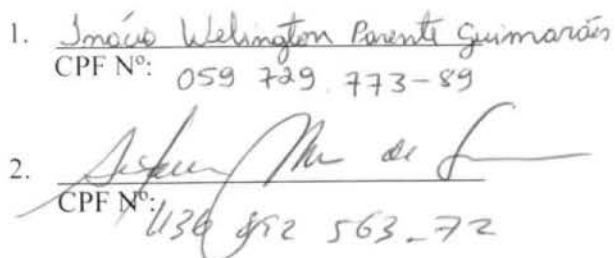 1. Inácio Welington Parente Guimarães
CPF Nº: 059 729.773-89
2.
CPF Nº: 563-72